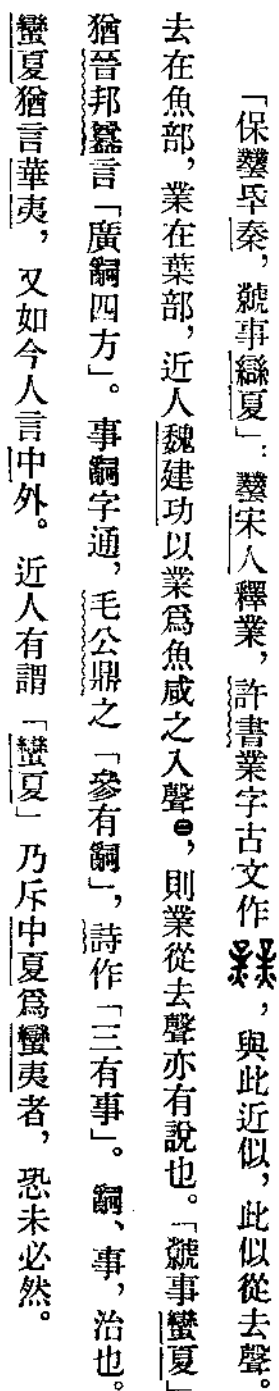 「保𤔲氒秦，虩事䜌夏」：宋人釋業，許書業字古文作，與此近似，此似從去聲。
去在魚部，業在葉部，近人魏建功以業爲魚咸之入聲㊀，則業從去聲亦有說也。「虩事蠻夏」
猶晉邦𥂴言「廣嗣四方」。事嗣字通，毛公鼎之「參有嗣」，詩作「三有事」。嗣、事，治也。
蠻夏猶言華夷，又如今人言中外。近人有謂「蠻夏」乃斥中夏爲蠻夷者，恐未必然。